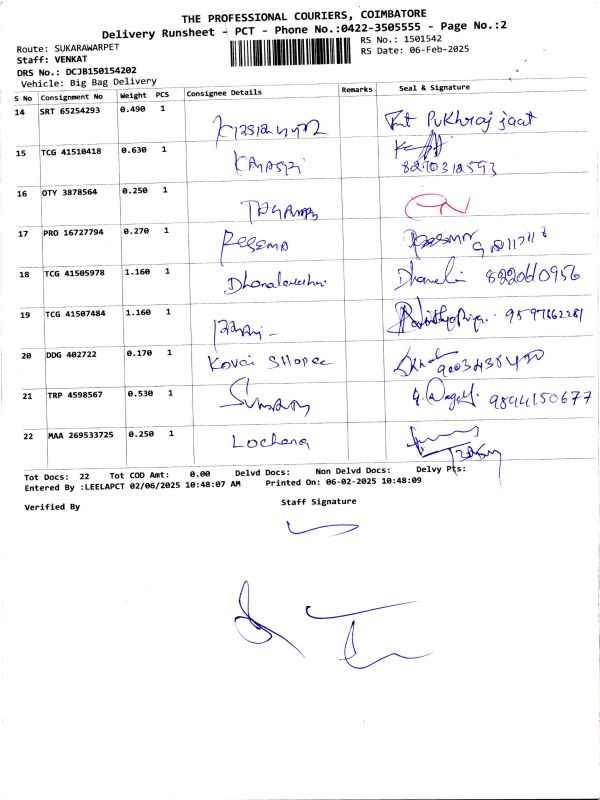 THE PROFESSIONAL COURIERS, COIMBATORE
Delivery Runsheet - PCT - Phone No.:0422-3505555 - Page No.:2
Route: SUKARAWARPET
RS No.: 1501542
Staff: VENKAT
RS Date: 06-Feb-2025
DRS No.: DCJB150154202
Vehicle: Big Bag Delivery
S No Consignment No Weight PCS Consignee Details Remarks Seal & Signature
14 SRT 65254293 0.490 1 Pukhraj jaat
15 TCG 41510418 0.630 1
8270312593
16 OTY 3878564 0.250 1
17 PRO 16727794 0.270 1
18 TCG 41505978 1.160 1 Dhanalakshmi
19 TCG 41507484 1.160 1
20 DDG 402722 0.170 1 Kovai SHopee
21 TRP 4598567 0.530 1 9894150677
22 MAA 269533725 0.250 1 Lochana
Tot Docs: 22 Tot COD Amt: 0.00 Delvd Docs: Non Delvd Docs: Delvy Pts:
Entered By :LEELAPCT 02/06/2025 10:48:07 AM Printed On: 06-02-2025 10:48:09
Verified By Staff Signature